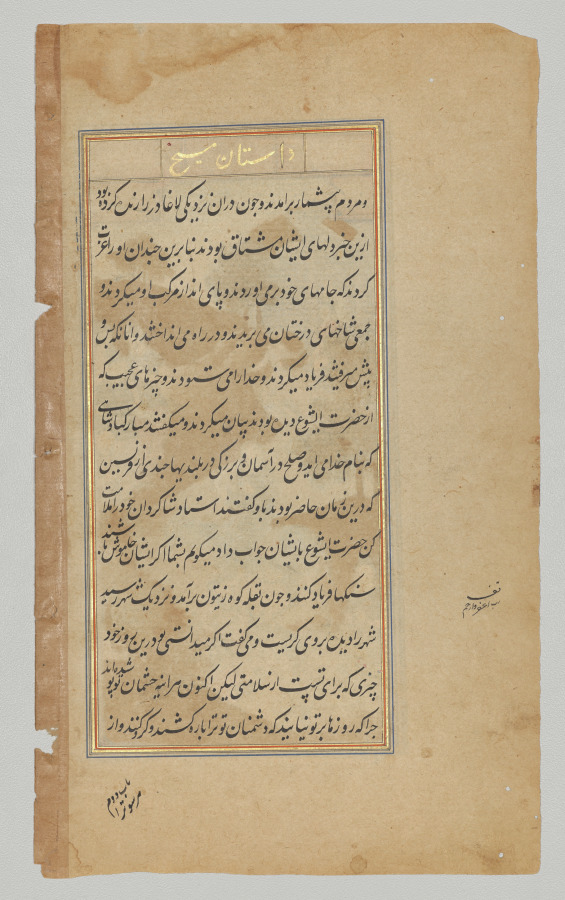 داستان مسیح
و مردم بیشمار برامدند و چون دران نزدیکی لاغاذر را زنده کرده بود
ازین خبر دلهای ایشان مشتاق بودند بنابرین چندان او را عزت
کردند که جامهای خود برمی اوردند و پای انداز مرکب او میکردند و
جمعی شاخهای درختان می بریدند و در راه می انداختند و انانکه پس و
پیش میرفتند فریاد میکردند و خدا را می ستودند و چیزهای عجیب که
از حضرت ایشوع دیده بودند بیان میکردند و میگفتند مبارکباد شاهی
که بنام خدا می اید و صلح در آسمان و بزرگی در بلندیها چندی از فریسین
که درین زمان حاضر بودند باو گفتند استاد شاگردان خود را ملامت
کن حضرت ایشوع بایشان جواب داد میگویم بشما اگر ایشان خاموش باشند
سنگها فریاد کنند و چون بقله کوه زیتون برآمد و نزدیک شهر رسید
شهر را دیده بروی گریست و می گفت اگر میدانستی تو درین روز خود
چیزی که برای تست از سلامتی لیکن اکنون هراینه چشمان تو پوشیده اند
چرا که روزها بر تو بیایند که دشمنان تو ترا باره کشند و گرد کنند و از